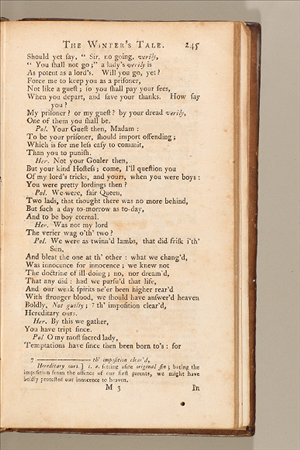 THE WINTER'S TALE. 245
Should yet say, " Sir, no going, verily,
" You shall not go;" a lady's verily is
As potent as a lord's. Will you go, yet?
Force me to keep you as a prisoner,
Not like a guest; so you shall pay your fees,
When you depart, and save your thanks. How say
you?
My prisoner? or my guest? by your dread verily,
One of them you shall be.
Pol. Your Guest then, Madam:
To be your prisoner, should import offending;
Which is for me less easy to commit,
Than you to punish.
Her. Not your Goaler then,
But your kind Hostess; come, I'll question you
Of my lord's tricks, and yours, when you were boys:
You were pretty lordings then?
Pol. We were, fair Queen,
Two lads, that thought there was no more behind,
But such a day to-morrow as to-day,
And to be boy eternal.
Her. Was not my lord
The verier wag o'th' two?
Pol. We were as twinn'd lambs, that did frisk i'th'
Sun,
And bleat the one at th' other: what we chang'd,
Was innocence for innocence; we knew not
The doctrine of ill doing; no, nor dream'd,
That any did: had we pursu'd that life,
And our weak spirits ne'er been higher rear'd
With stronger blood, we should have answer'd heaven
Boldly, Not guilty; 7 th' imposition clear'd,
Hereditary ours.
Her. By this we gather,
You have tript since.
Pol. O my most sacred lady,
Temptations have since then been born to's: for
7 th' imposition clear'd,
Hereditary ours.] i. e. setting aside original sin; bating the
imposition from the offence of our first parents, we might have
boldly protested our innocence to heaven.
M 3 In